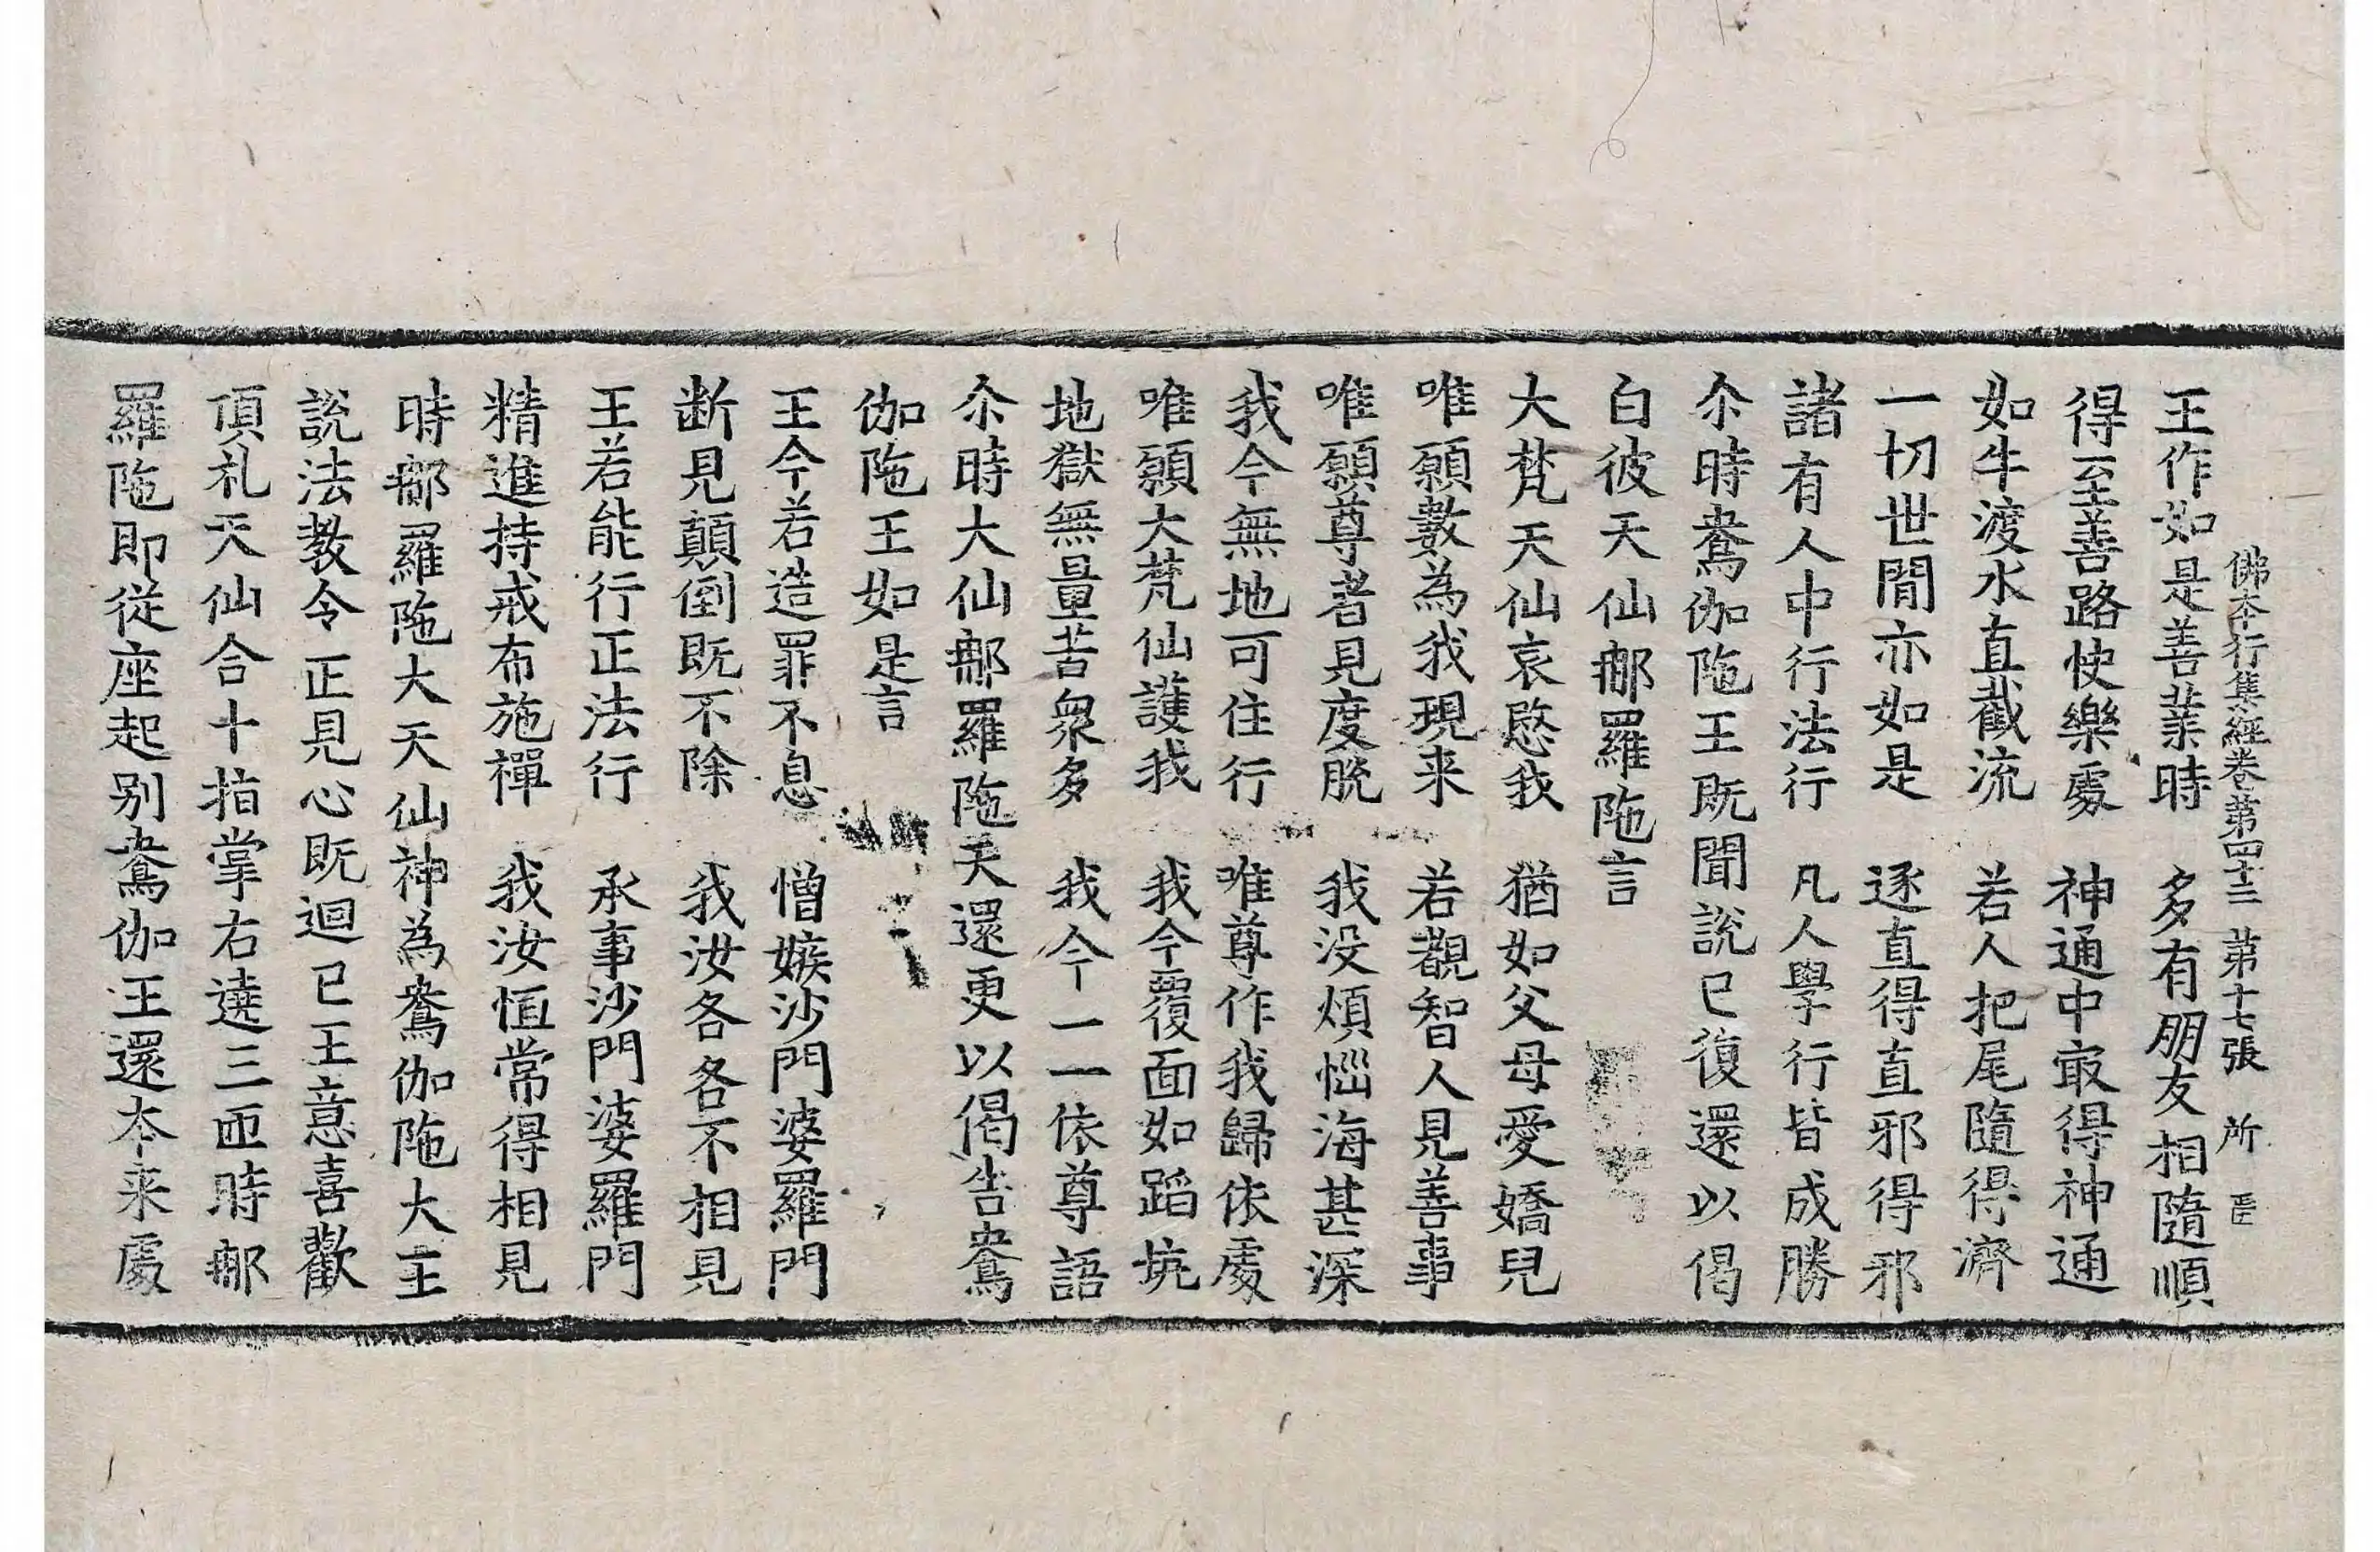 佛本行集經卷第四十三 第十七張 所
王作如是善業時 多有朋友相隨順
得至善路快樂處 神通中最得神通
如牛渡水直截流 若人把尾隨得濟
一切世間亦如是 逐直得直邪得邪
諸有人中行法行 凡人學行皆成勝
尒時鴦伽陁王既聞說已復還以偈
白彼天仙那羅陁言
大梵天仙哀愍我 猶如父母愛嬌兒
唯願數為我現来 若觀智人見善事
唯願尊者見度脫 我没煩惱海甚深
我今無地可住行 唯尊作我歸依處
唯願大梵仙護我 我今覆面如蹈坑
地獄無量苦衆多 我今一一依尊語
尒時大仙那羅陁天還更以偈告鴦
伽陁王如是言
王今若造罪不息 憎嫉沙門婆羅門
断見顛倒既不除 我汝各各不相見
王若能行正法行 承事沙門婆羅門
精進持戒布施禪 我汝恒常得相見
時那羅陁大天仙神為鴦伽陁大王
說法教令正見心既迴已王意喜歡
頂礼天仙合十指掌右遶三匝時那
羅陁即從座起别鴦伽王還本来處